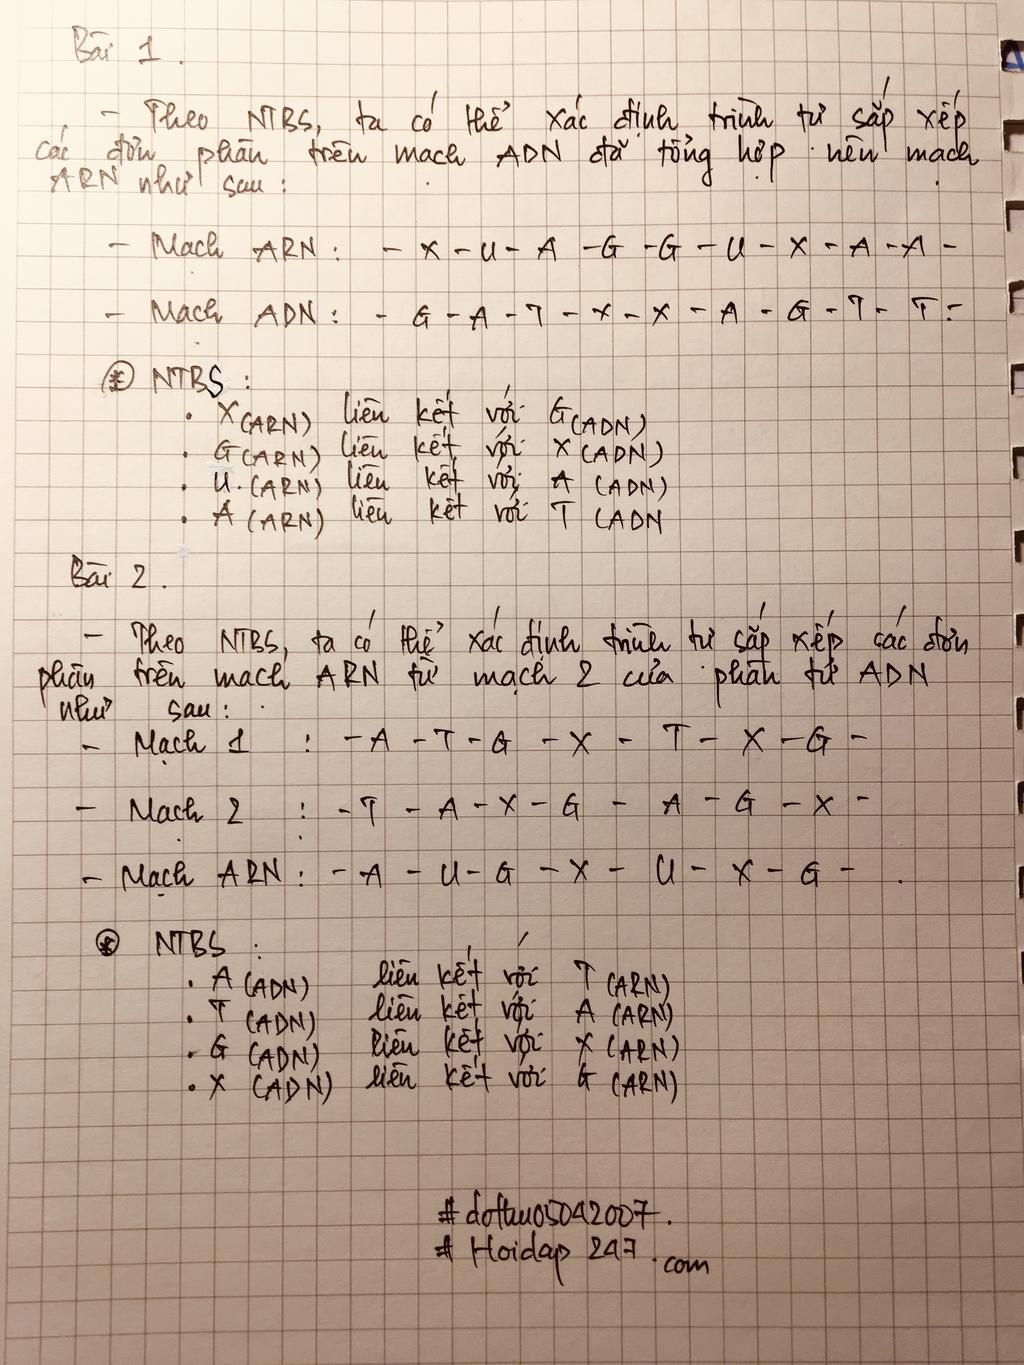 Bài 1.
- Theo NTBS, ta có thể xác định trình tự sắp xếp
các đơn phân trên mạch ADN đã tổng hợp nên mạch
ARN như sau:
- Mạch ARN: - X - U - A - G - G - U - X - A - A -
- Mạch ADN: - G - A - T - X - X - A - G - T - T -
* NTBS:
• X(ARN) liên kết với G(ADN)
• G(ARN) liên kết với X(ADN)
• U.(ARN) liên kết với A (ADN)
• A (ARN) liên kết với T (ADN
Bài 2.
- Theo NTBS, ta có thể xác định trình tự sắp xếp các đơn
phân trên mạch ARN từ mạch 2 của phân tử ADN
như sau:
- Mạch 1 : - A - T - G - X - T - X - G -
- Mạch 2 : - T - A - X - G - A - G - X -
- Mạch ARN: - A - U - G - X - U - X - G - .
* NTBS :
• A (ADN) liên kết với T (ARN)
• T (ADN) liên kết với A (ARN)
• G (ADN) liên kết với X (ARN)
• X (ADN) liên kết với G (ARN)
# dofthu05042007.
# Hoidap 247 .com